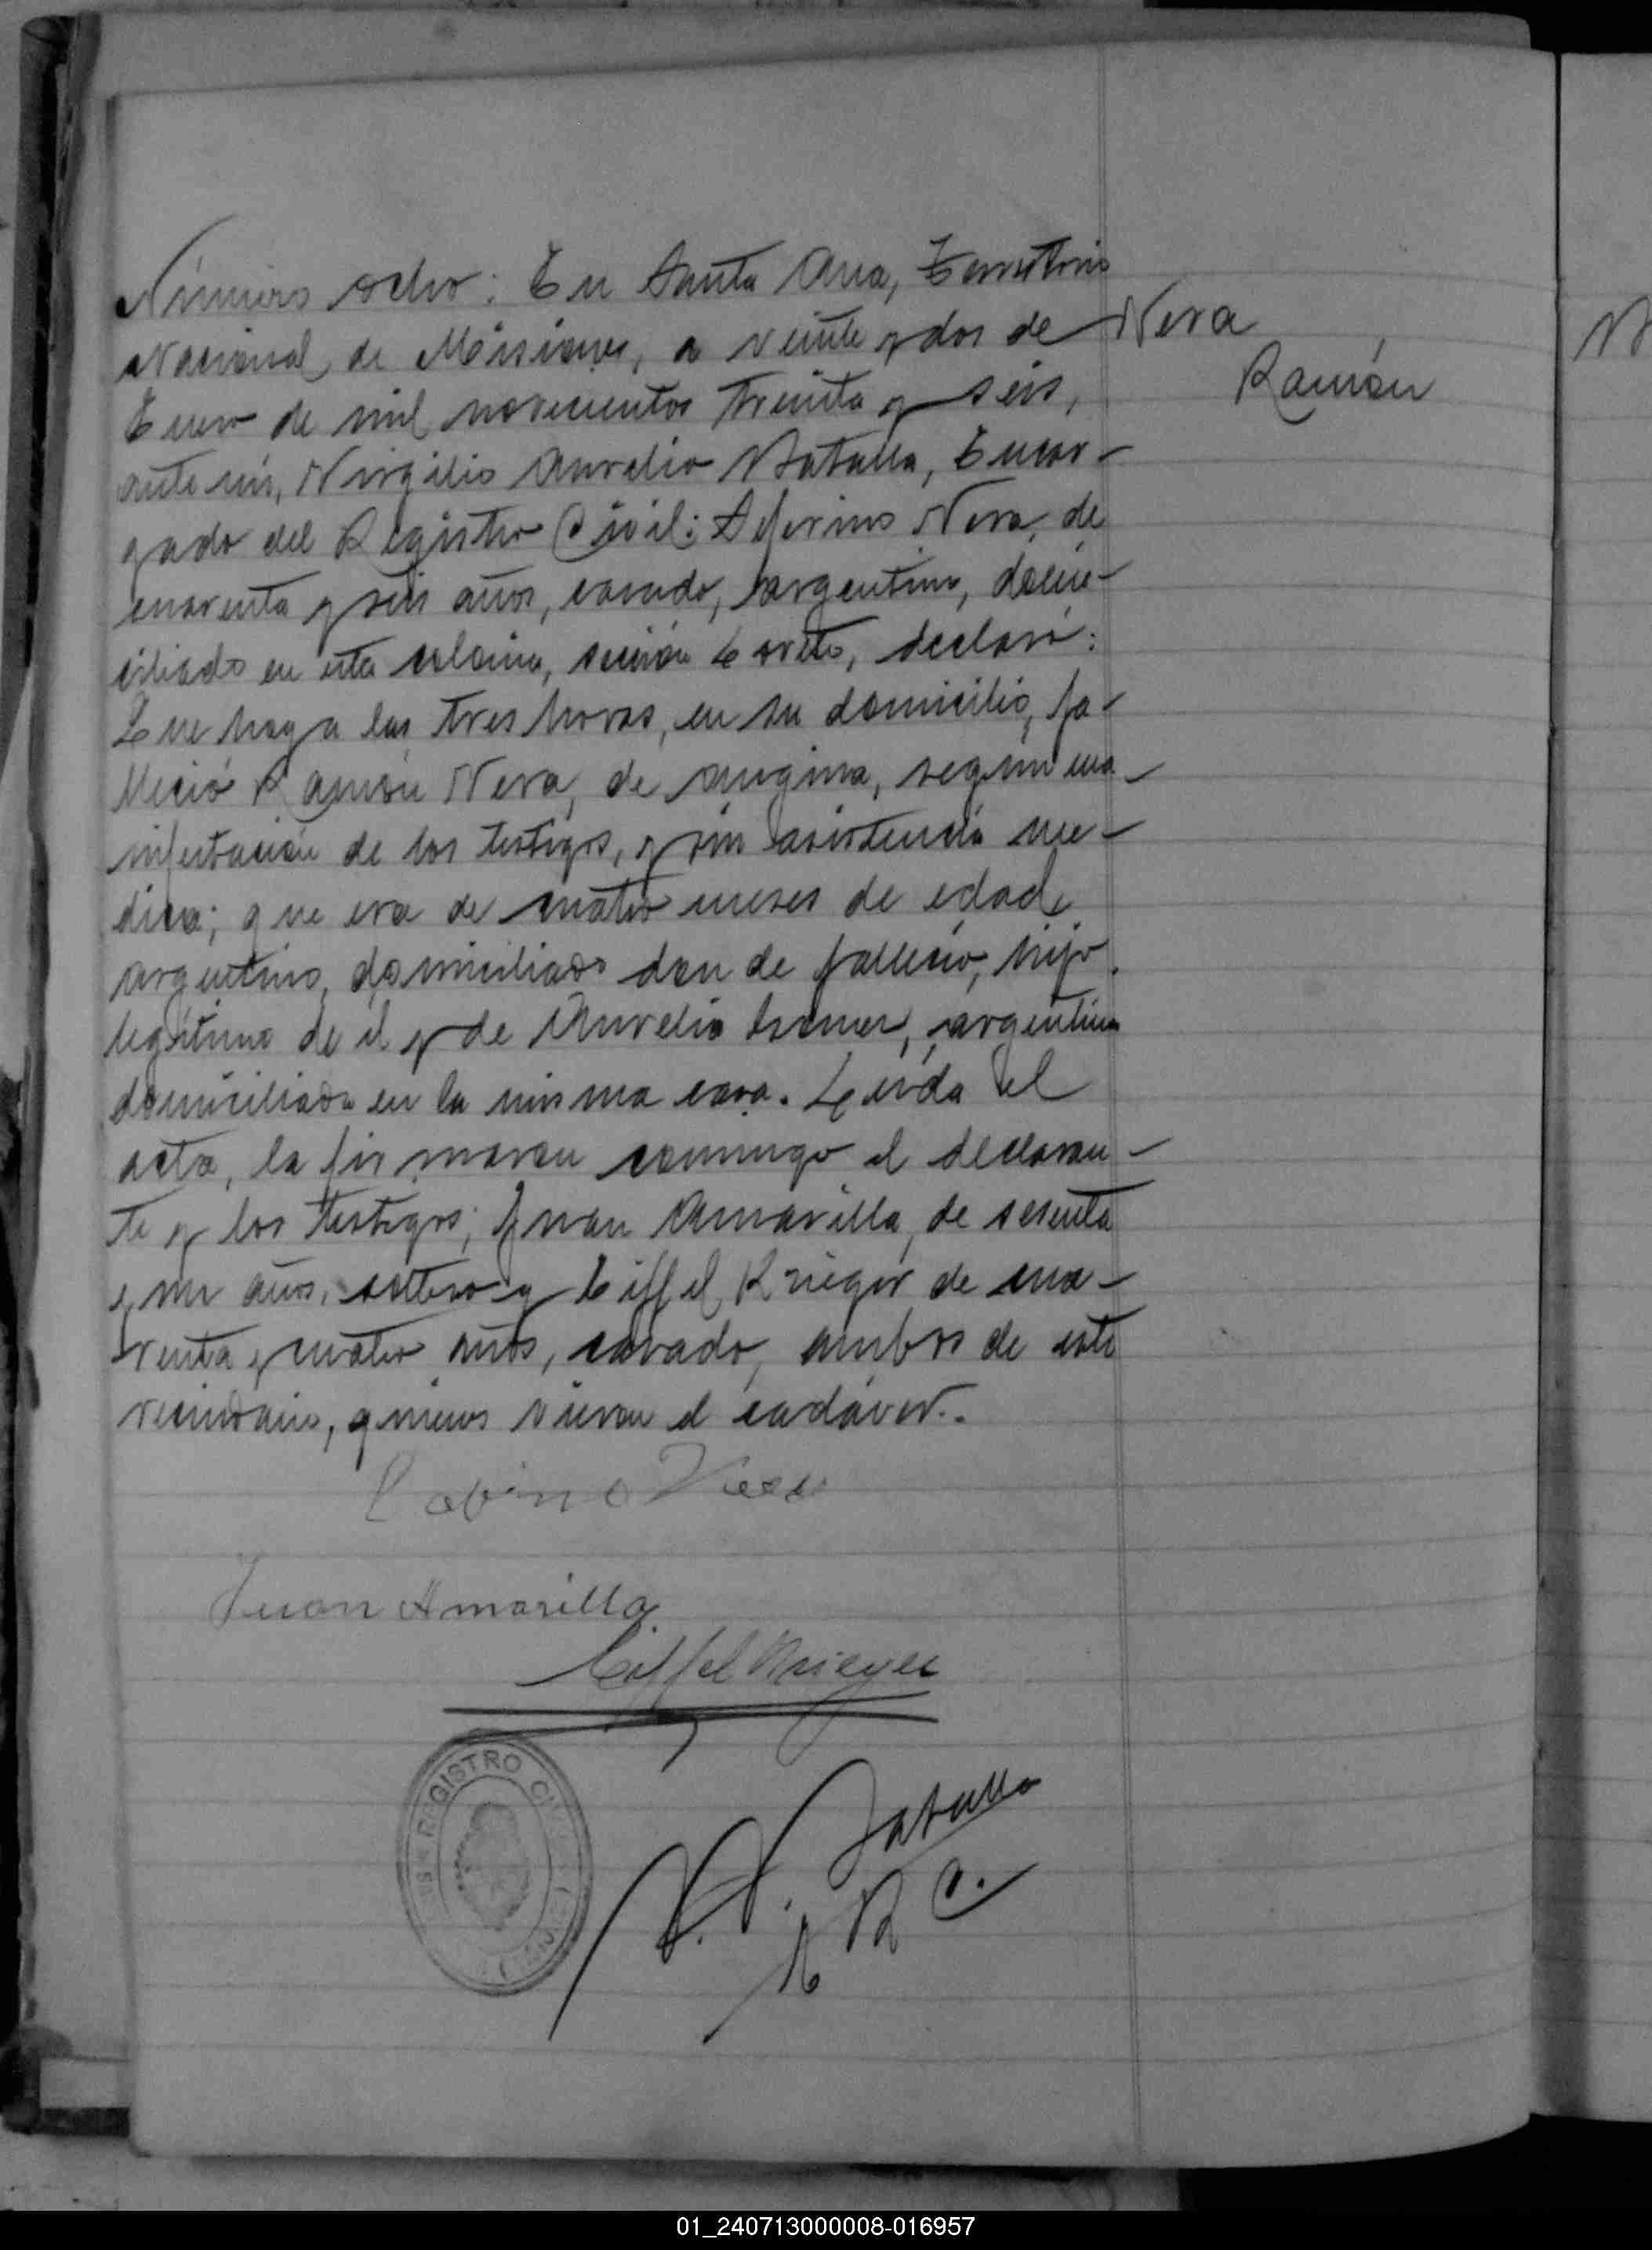 Número ocho: En Santa Ana, Territorio
Nacional de Misiones, a veinte y dos de
Enero de mil novecientos treinta y seis,
ante mí, Virgilio Aurelio Batalla, Encar-
gado del Registro Civil: Seferino Vera, de
cuarenta y seis años, casado, argentino, domi-
ciliado en esta colonia, sección Loreto, declaró:
Que hoy a las tres horas, en su domicilio, fa-
lleció Ramón Vera, de angina, según ma-
nifestación de los testigos, y sin asistencia mé-
dica; que era de cuatro meses de edad,
argentino, domiciliado donde falleció, hijo
legítimo de él y de Aurelia, argentina
domiciliada en la misma casa. Leída el
acta, la firmaron conmigo el declaran-
te y los testigos; Juan Amarilla, de sesenta
y un años, soltero y Eiffel Krieger de cua-
renta y cuatro años, casado, ambos de este
vecindario, quienes vieron el cadáver.
Vera
Ramón
Juan Amarilla
Eiffel Krieger
V. A. Batalla
E R C.
REGISTRO CIVIL
01_240713000008-016957